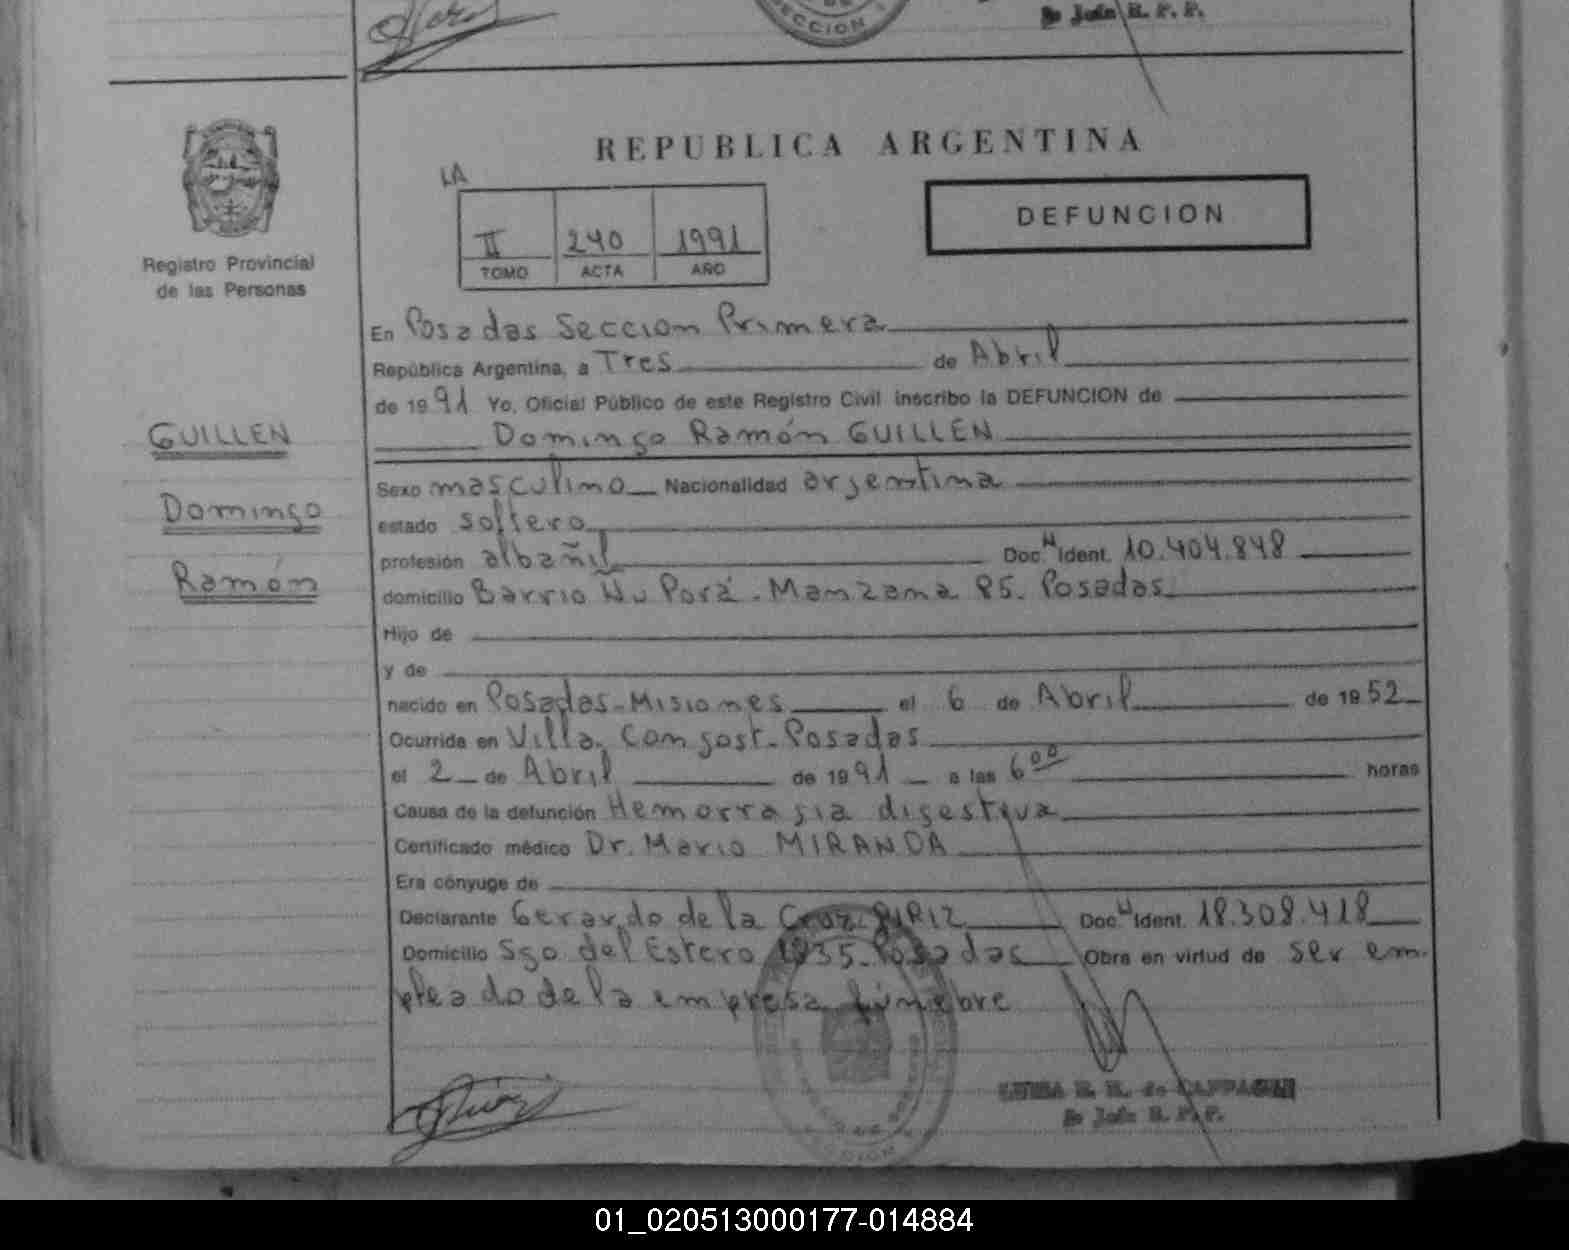 SECCION
2o Jefe R. P. P.
REPUBLICA ARGENTINA
LA
II 240 1991
TOMO ACTA AÑO
DEFUNCION
Registro Provincial
de las Personas
GUILLEN
Domingo
Ramón
En Posadas Seccion Primera
República Argentina, a Tres de Abril
de 1991 Yo, Oficial Público de este Registro Civil inscribo la DEFUNCION de
Domingo Ramón GUILLEN
Sexo masculino Nacionalidad argentina
estado soltero
profesión albañil Doc. N Ident. 10.404.848
domicilio Barrio Ñu Porá - Manzana 85. Posadas
Hijo de
y de
nacido en Posadas - Misiones el 6 de Abril de 1952
Ocurrida en Villa Longost - Posadas
el 2 de Abril de 1991 a las 6 00 horas
Causa de la defunción Hemorragia digestiva
Certificado médico Dr. Mario MIRANDA
Era cónyuge de
Declarante Gerardo de la Cruz Doc. N Ident. 18.308.418
Domicilio Sgo del Estero 1835 - Posadas Obra en virtud de ser em-
pleado de la empresa fúnebre
LUISA E. R. de
2o Jefe R. P. P.
01_020513000177-014884